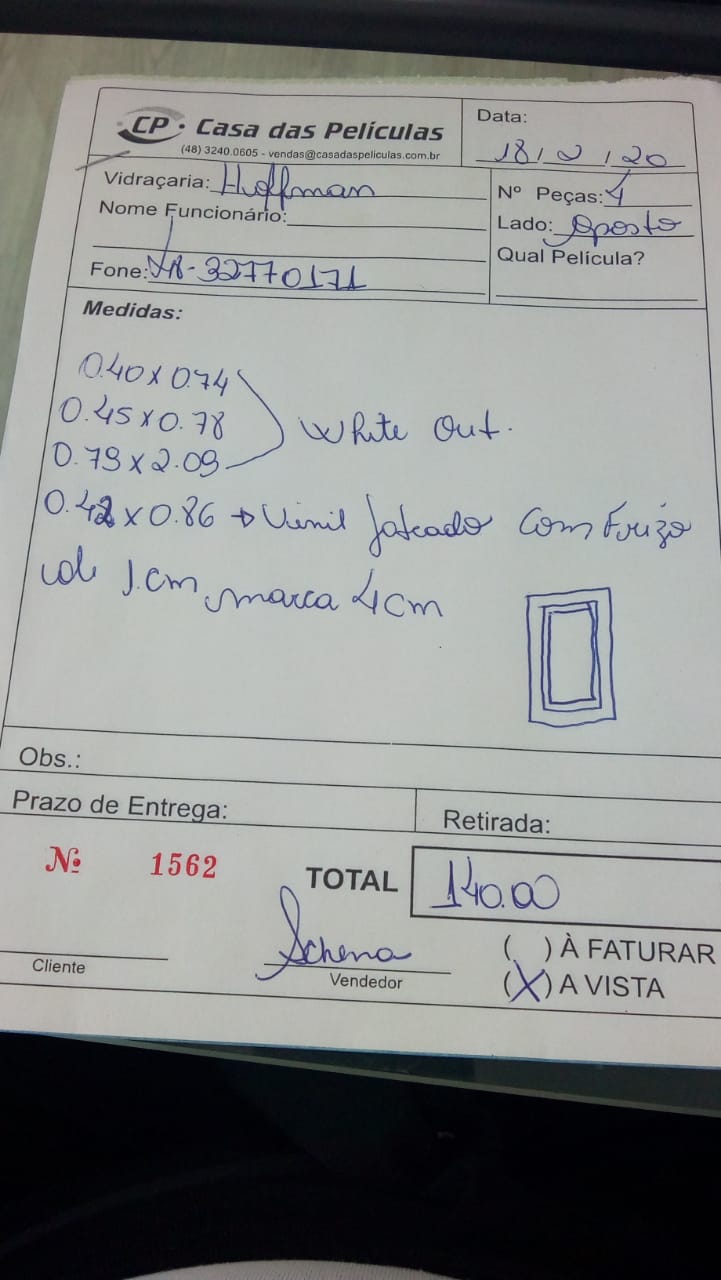 CP Casa das Películas
(48) 3240.0605 - vendas@casadaspeliculas.com.br
Data: 18/2/20
Vidraçaria: Hoffman
Nº Peças: 4
Nome Funcionário:
Lado: Oposto
Qual Película?
Fone: 48-32770171
Medidas:
0.40 x 0.74
0.45 x 0.78 White Out.
0.79 x 2.09
0.42 x 0.86 → Vinil Jateado Com Frizo
de 1.cm marca 4cm
Obs.:
Prazo de Entrega:
Retirada:
Nº 1562
TOTAL 140.00
Schena
( ) À FATURAR
Cliente
Vendedor
(X) A VISTA